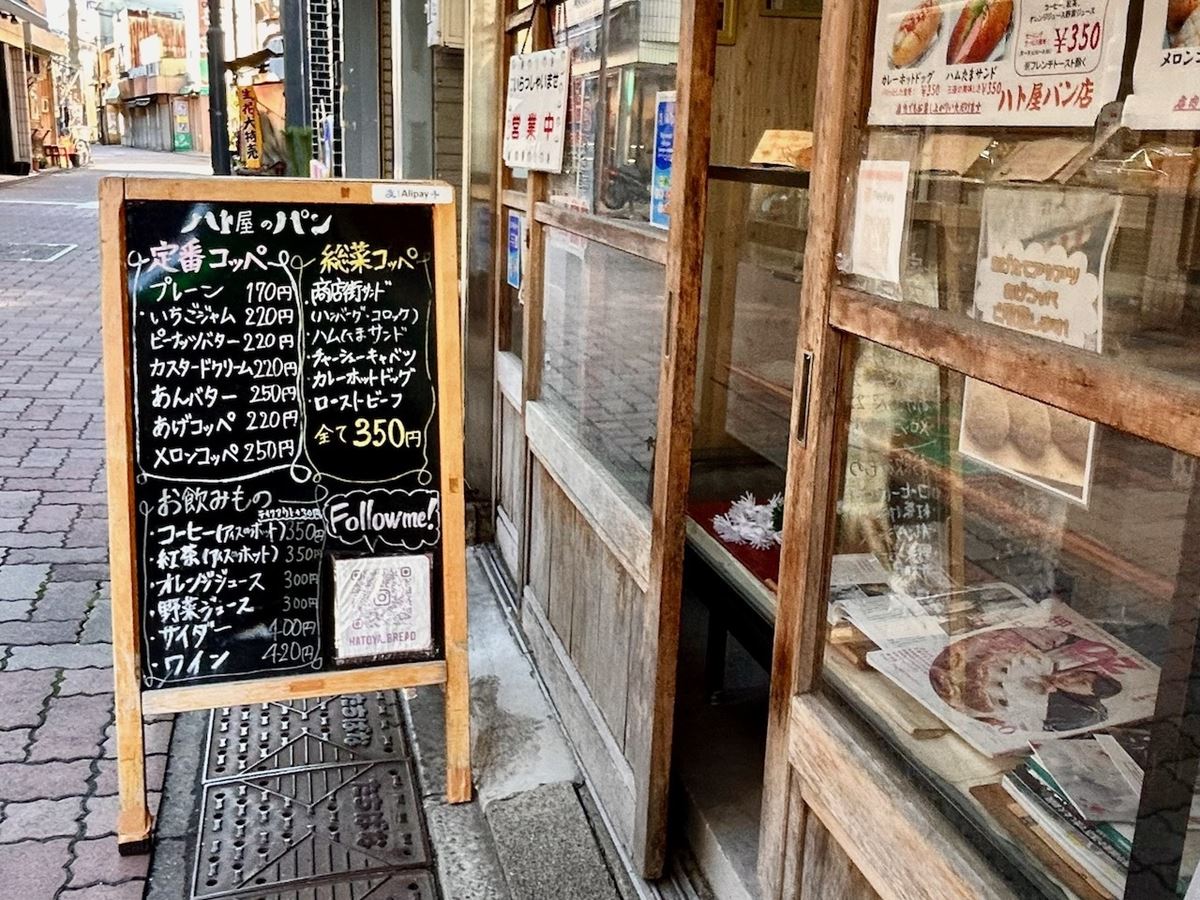 Alipay
ハト屋のパン
定番コッペ
プレーン 170円
・いちごジャム 220円
ピーナッツバター 220円
カスタードクリーム 220円
あんバター 250円
あげコッペ 220円
メロンコッペ 250円
総菜コッペ
・商店街サンド
(ハンバーグ・コロッケ)
・ハムたまサンド
・チャーシューキャベツ
・カレーホットドッグ
・ローストビーフ
全て350円
お飲みもの
・コーヒー(アイスorホット) 350円
・紅茶(アイスorホット) 350円
・オレンジジュース 300円
・野菜ジュース 300円
・サイダー 400円
・ワイン 420円
Follow me!
HATOYA_BREAD
生花大特売
いらっしゃいませ
営業中
¥350
カレーホットドッグ
ハムたまサンド
¥350
ハト屋パン店
メロンコ